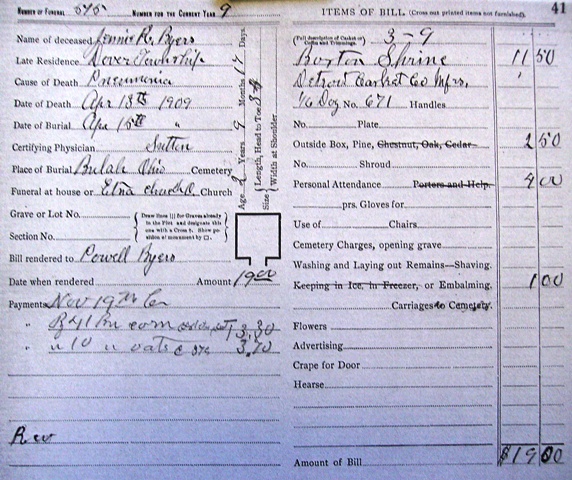 NUMBER OF FUNERAL 545 NUMBER FOR THE CURRENT YEAR 9
Name of deceased Jennie R. Byers
Late Residence Dover Township
Cause of Death Pneumonia
Date of Death Apr 13th 1909
Date of Burial Apr 15th "
Certifying Physician Sutton
Place of Burial Bulah Ohio Cemetery
Funeral at house or Etna church O Church
Age Years 9 Months 17 Days
Size { Length, Head to Toe
Width at Shoulder
Grave or Lot No.
Section No.
{ Draw lines ||| for Graves already in the Plot and designate this one with a Cross †. Show position of monument by □. }
Bill rendered to Powell Byers
Date when rendered Amount 19.00
Payments Nov 19th
" By 41 Bu corn 13.30
" " 10 " oats @ 37¢ 3.70
Rev
ITEMS OF BILL. (Cross out printed items not furnished.) 41
(Full description of Casket or Coffin and Trimmings.) 3-9
Burton Shrine 11 50
Detroit Casket Co Mfrs,
1/6 Doz No. 671 Handles
No. Plate
Outside Box, Pine, Chestnut, Oak, Cedar 2 50
No. Shroud
Personal Attendance Porters and Help. 4 00
prs. Gloves for
Use of Chairs
Cemetery Charges, opening grave
Washing and Laying out Remains—Shaving.
Keeping in Ice, in Freezer, or Embalming, 1 00
Carriages to Cemetery.
Flowers
Advertising
Crape for Door
Hearse
Amount of Bill $19 00